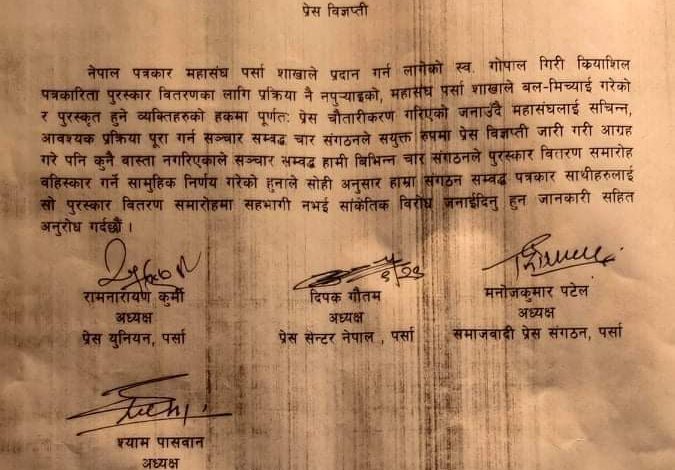 प्रेस विज्ञप्ती
नेपाल पत्रकार महासंघ पर्सा शाखाले प्रदान गर्न लागेको स्व. गोपाल गिरी कियाशिल
पत्रकारिता पुरस्कार वितरणका लागि प्रक्रिया नै नपुऱ्याइको, महासंघ पर्सा शाखाले बल-मिच्याई गरेको
र पुरस्कृत हुने व्यक्तिहरुको हकमा पूर्णत: प्रेस चौतारीकरण गरिएको जनाउँदै महासंघलाई सचिन्न,
आवश्यक प्रक्रिया पूरा गर्न सञ्चार सम्वद्ध चार संगठनले सयुक्त रुपमा प्रेस विज्ञप्ती जारी गरी आग्रह
गरे पनि कुनै वास्ता नगरिएकाले सञ्चार सम्बद्ध हामी विभिन्न चार संगठनले पुरस्कार वितरण समारोह
वहिस्कार गर्ने सामुहिक निर्णय गरेको हुनाले सोही अनुसार हाम्रा संगठन सम्वद्ध पत्रकार साथीहरुलाई
सो पुरस्कार वितरण समारोहमा सहभागी नभई सांकेतिक विरोध जनाईदिनु हुन जानकारी सहित
अनुरोध गर्दछौं ।
रामनारायण कुर्मी
अध्यक्ष
प्रेस युनियन, पर्सा
दिपक गौतम
अध्यक्ष
प्रेस सेन्टर नेपाल , पर्सा
मनोजकुमार पटेल
अध्यक्ष
समाजवादी प्रेस संगठन, पर्सा
श्याम पासवान
अध्यक्ष